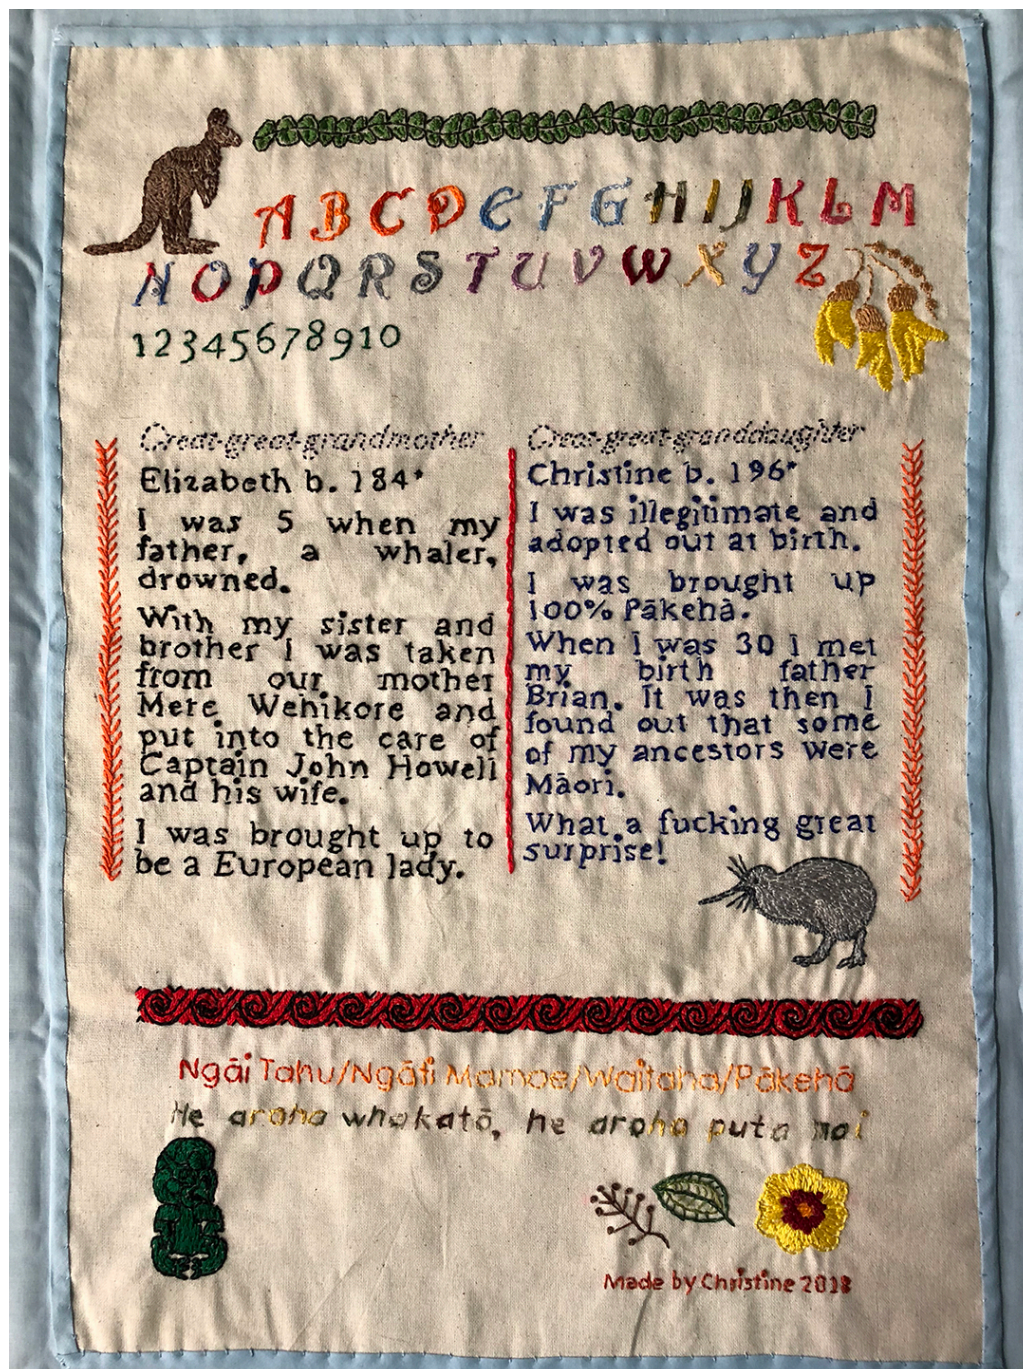 ABCDEFGHIJKLM
NOPQRSTUVWXYZ
12345678910
Great-great-grandmother
Elizabeth b. 184*
I was 5 when my
father, a whaler,
drowned.
With my sister and
brother I was taken
from our mother
Mere Wehikore and
put into the care of
Captain John Howell
and his wife.
I was brought up to
be a European lady.
Great-great-granddaughter
Christine b. 196*
I was illegitimate and
adopted out at birth.
I was brought up
100% Pākehā.
When I was 30 I met
my birth father
Brian. It was then I
found out that some
of my ancestors were
Māori.
What a fucking great
surprise!
Ngāi Tahu/Ngāti Mamoe/Waitaha/Pākehā
He aroha whakatō, he aroha puta mai
Made by Christine 2018